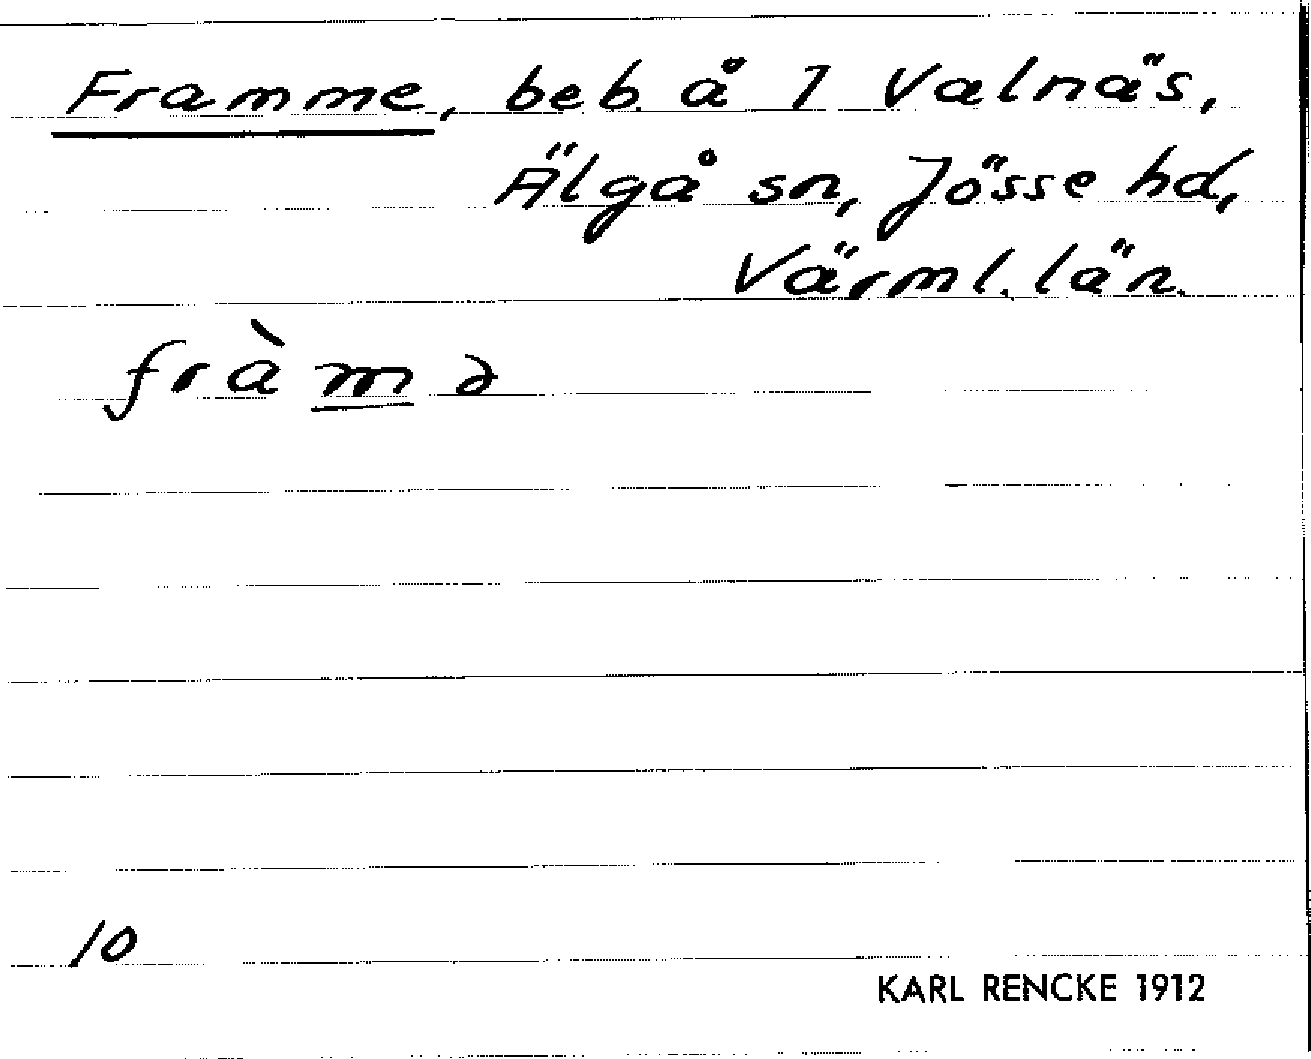 Framme, beb. å 1 Valnäs,
Älgå sn, Jösse hd,
Värml. län.
fràmə
10
KARL RENCKE 1912